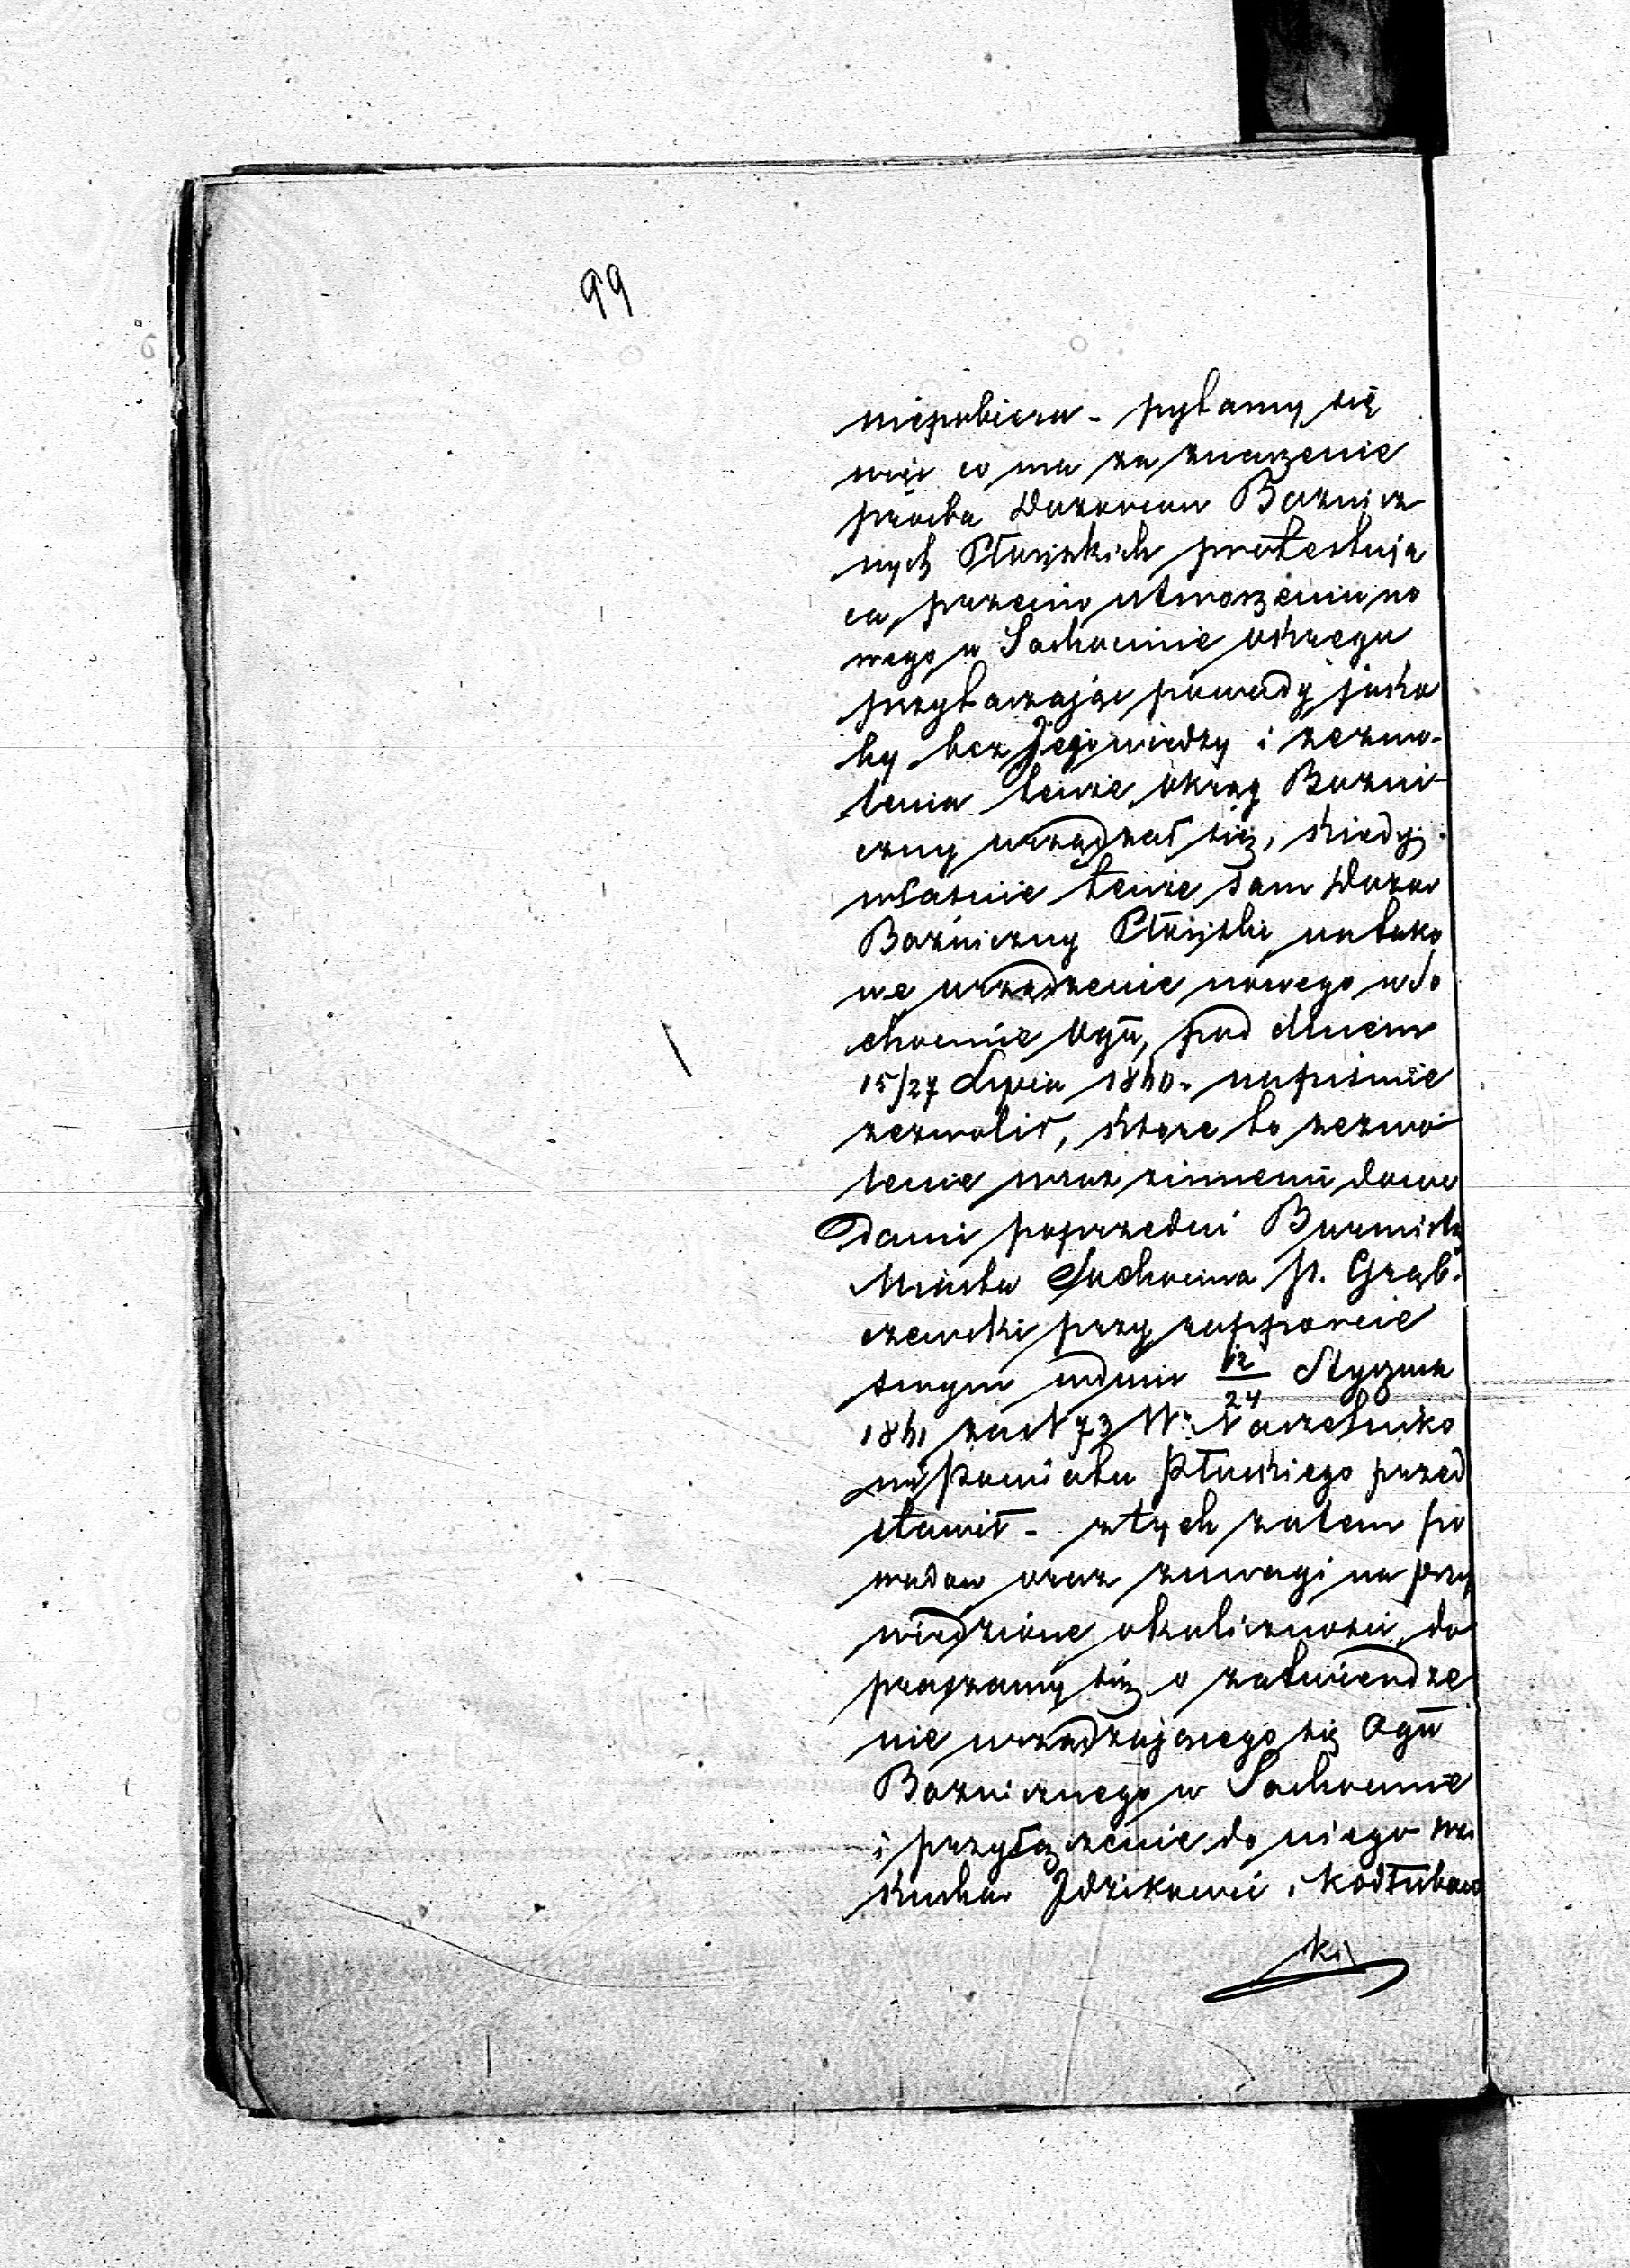 99
niepobiera - pytamy się
więc co ma za znaczenie
prośba Dozorców Boznicz
nych Płońskich protestują
ca przeciw utworzeniu no
wego w Sochocinie okręgu
przytaczając powody jako
by bez Jego wiedzy i zezwo-
lenia tenże okręg Bozni
czny urządzał się, kiedy
właśnie tenże sam Dozór
Bożniczny Płoński na tako
we urządzenie nowego w So
chocinie Ogu, pod dniem
15/27 Lipca 1840. na piśmie
zezwolił, które to zezwo
lenie wraz z innemi dowo
dami poprzedni Burmistrz
Miasta Sochocina P. Grąb.
czewski przy rapporcie
swym w dniu 12/24 Stycznia
1841 za N 73 W. Naczelniko
wi Powiatu Płockiego przed
stawił - z tych zatem po
wodów oraz z uwagi na przy
wiedzione okoliczności, do
praszamy się o zatwierdze
nie urządzającego się Ogu
Bozniczego w Sochocinie
i przyłączenie do niego
Jdzikowic i Kodłubow
ki